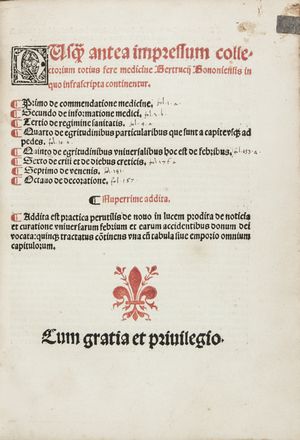 NUsq̃ antea impressum colle-
ctorium totius fere medicine Bertrucij Bononiensis in
quo infrascripta continentur.
¶ Primo de commendatione medicine,
¶ Secundo de informatione medici,
¶ Tertio de regimine sanitatis.
¶ Quarto de egritudinibus particularibus que sunt a capite vsq̃ ad
pedes.
¶ Quinto de egritudinibus vniuersalibus hoc est de febribus,
¶ Sexto de crisi et de diebus creticis,
¶ Septimo de venenis,
¶ Octauo de decoratione,
¶ Nuperrime addita.
¶ Addita est practica perutilis de nouo in lucem prodita de noticia
et curatione vniuersarum febrium et earum accidentibus donum dei
vocata: quinq̃ tractatus cõtinens vna cũ tabula siue emporio omnium
capitulorum.
Cum gratia et priuilegio.